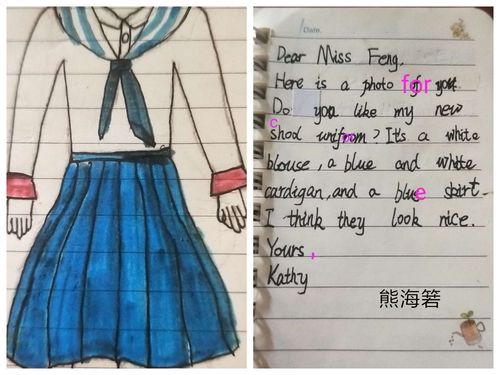 Date.
Dear Miss Feng,
Here is a photo for you
Do you like my new
c
shool uniform? It's a white
blouse, a blue and white
cardigan, and a blue skirt.
I think they look nice.
Yours,
Kathy
熊海箬